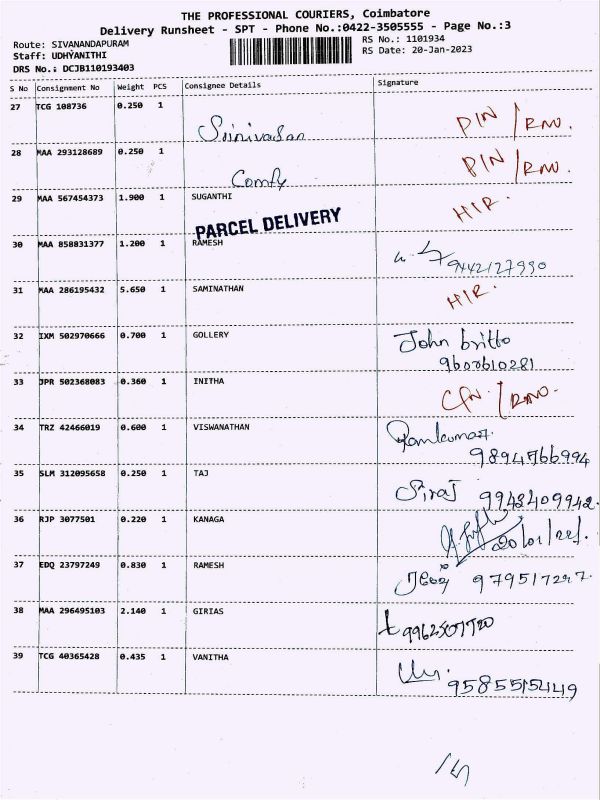 THE PROFESSIONAL COURIERS, Coimbatore
Delivery Runsheet - SPT - Phone No.:0422-3505555 - Page No.:3
Route: SIVANANDAPURAM RS No.: 1101934
Staff: UDHYANITHI RS Date: 20-Jan-2023
DRS No.: DCJB110193403
S No Consignment No Weight PCS Consignee Details Signature
27 TCG 108736 0.250 1 Srinivasan PIN / RNO.
28 MAA 293128689 0.250 1 Comfy PIN / RNO.
29 MAA 567454373 1.900 1 SUGANTHI HIR.
PARCEL DELIVERY
30 MAA 858831377 1.200 1 RAMESH 9442127990
31 MAA 286195432 5.650 1 SAMINATHAN HIR.
32 IXM 502970666 0.700 1 GOLLERY John britto
9600610281
33 JPR 502368083 0.360 1 INITHA / RNO.
34 TRZ 42466019 0.600 1 VISWANATHAN Ramkumar
9894766994
35 SLM 312095658 0.250 1 TAJ Siraj 9942409942
36 RJP 3077501 0.220 1 KANAGA
37 EDQ 23797249 0.830 1 RAMESH
38 MAA 296495103 2.140 1 GIRIAS
39 TCG 40365428 0.435 1 VANITHA
9585515449